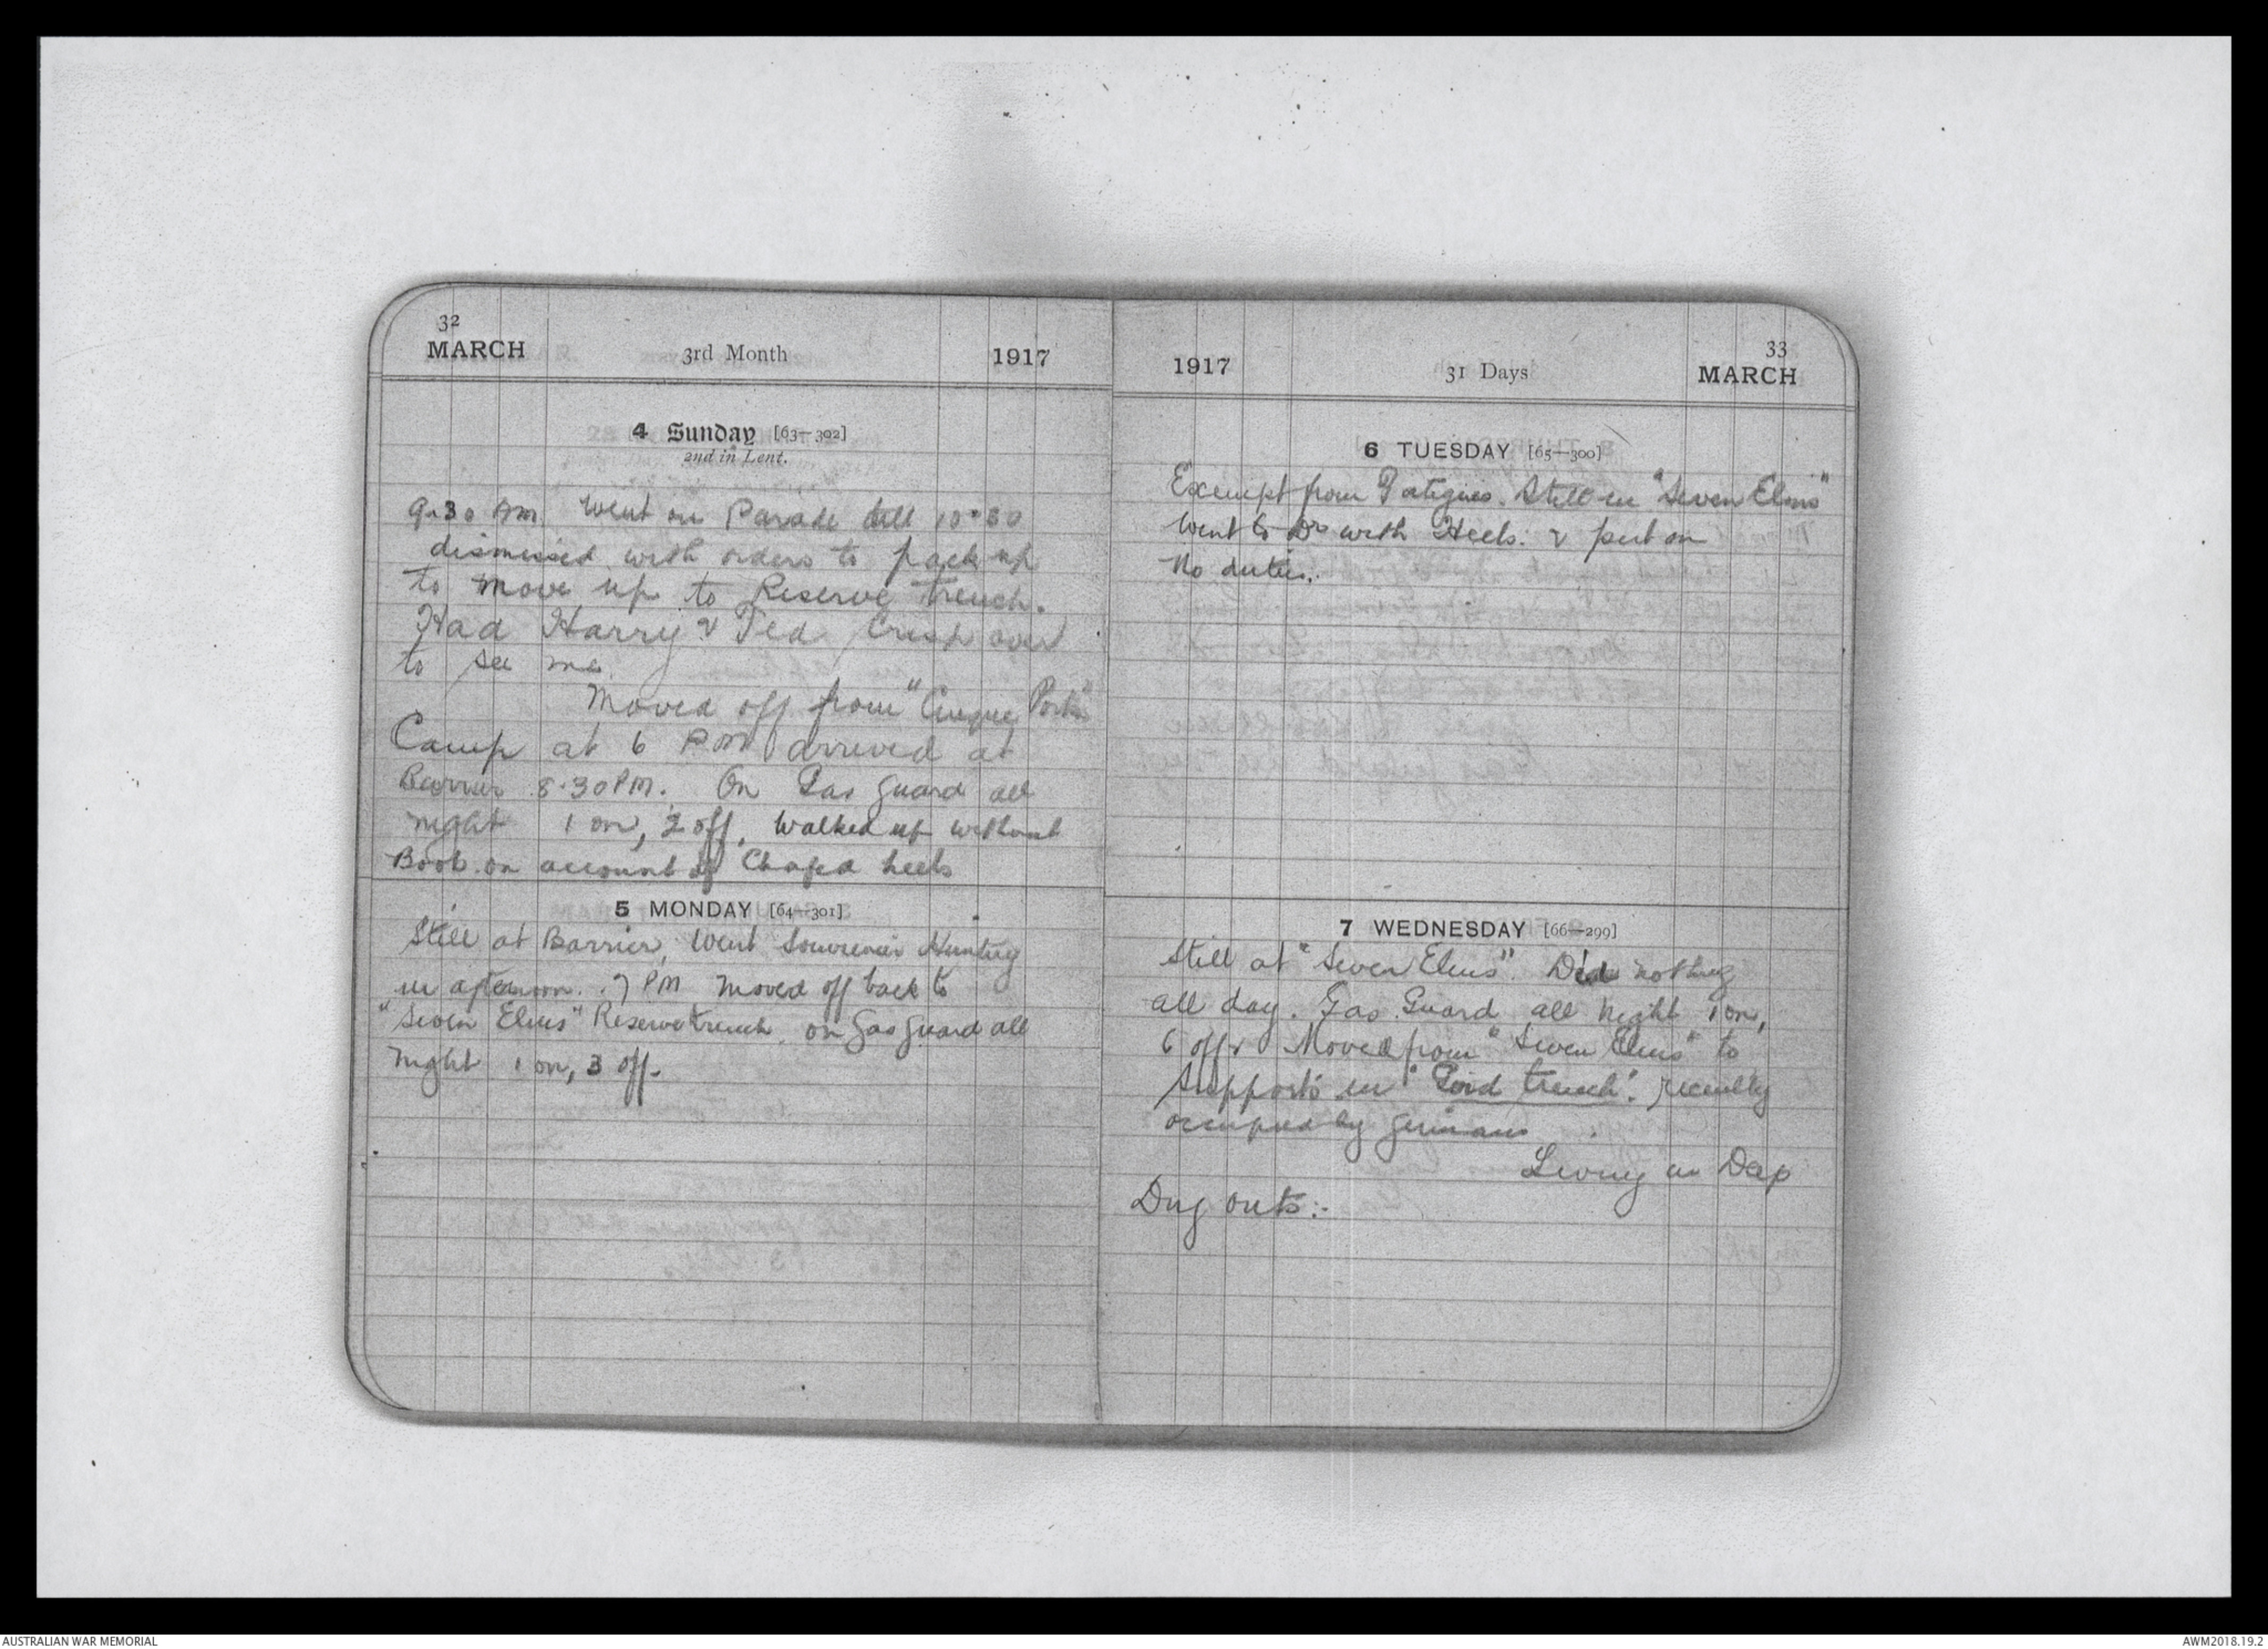 32
MARCH 3rd Month 1917
4 Sunday [63—302]
2nd in Lent.
9.30 AM. Went on Parade till 10.30
dismissed with orders to pack up
to move up to Reserve trench.
Had Harry & Ted Crisp over
to see me.
Moved off from "Cinque Ports"
Camp at 6 PM arrived at
Barrier 8.30 PM. On Gas guard all
night 1 on, 2 off. Walked up without
Boots on account of Chafed heels
5 MONDAY [64—301]
Still at Barrier, Went Souvenir Hunting
in afternoon. 7 PM moved off back to
"Seven Elms" Reserve trench, on Gas guard all
night 1 on, 3 off.
33
1917 31 Days MARCH
6 TUESDAY [65—300]
Exempt from Fatigues. Still in "Seven Elms"
Went to Dr with Heels. & put on
No duties.
7 WEDNESDAY [66—299]
Still at "Seven Elms". Did nothing
all day. Gas Guard all night 1 on,
6 off & Moved from "Seven Elms" to
Supports in " trench". recently
occupied by Germans
Living in Deep
Dug outs:-
AUSTRALIAN WAR MEMORIAL AWM2018.19.2